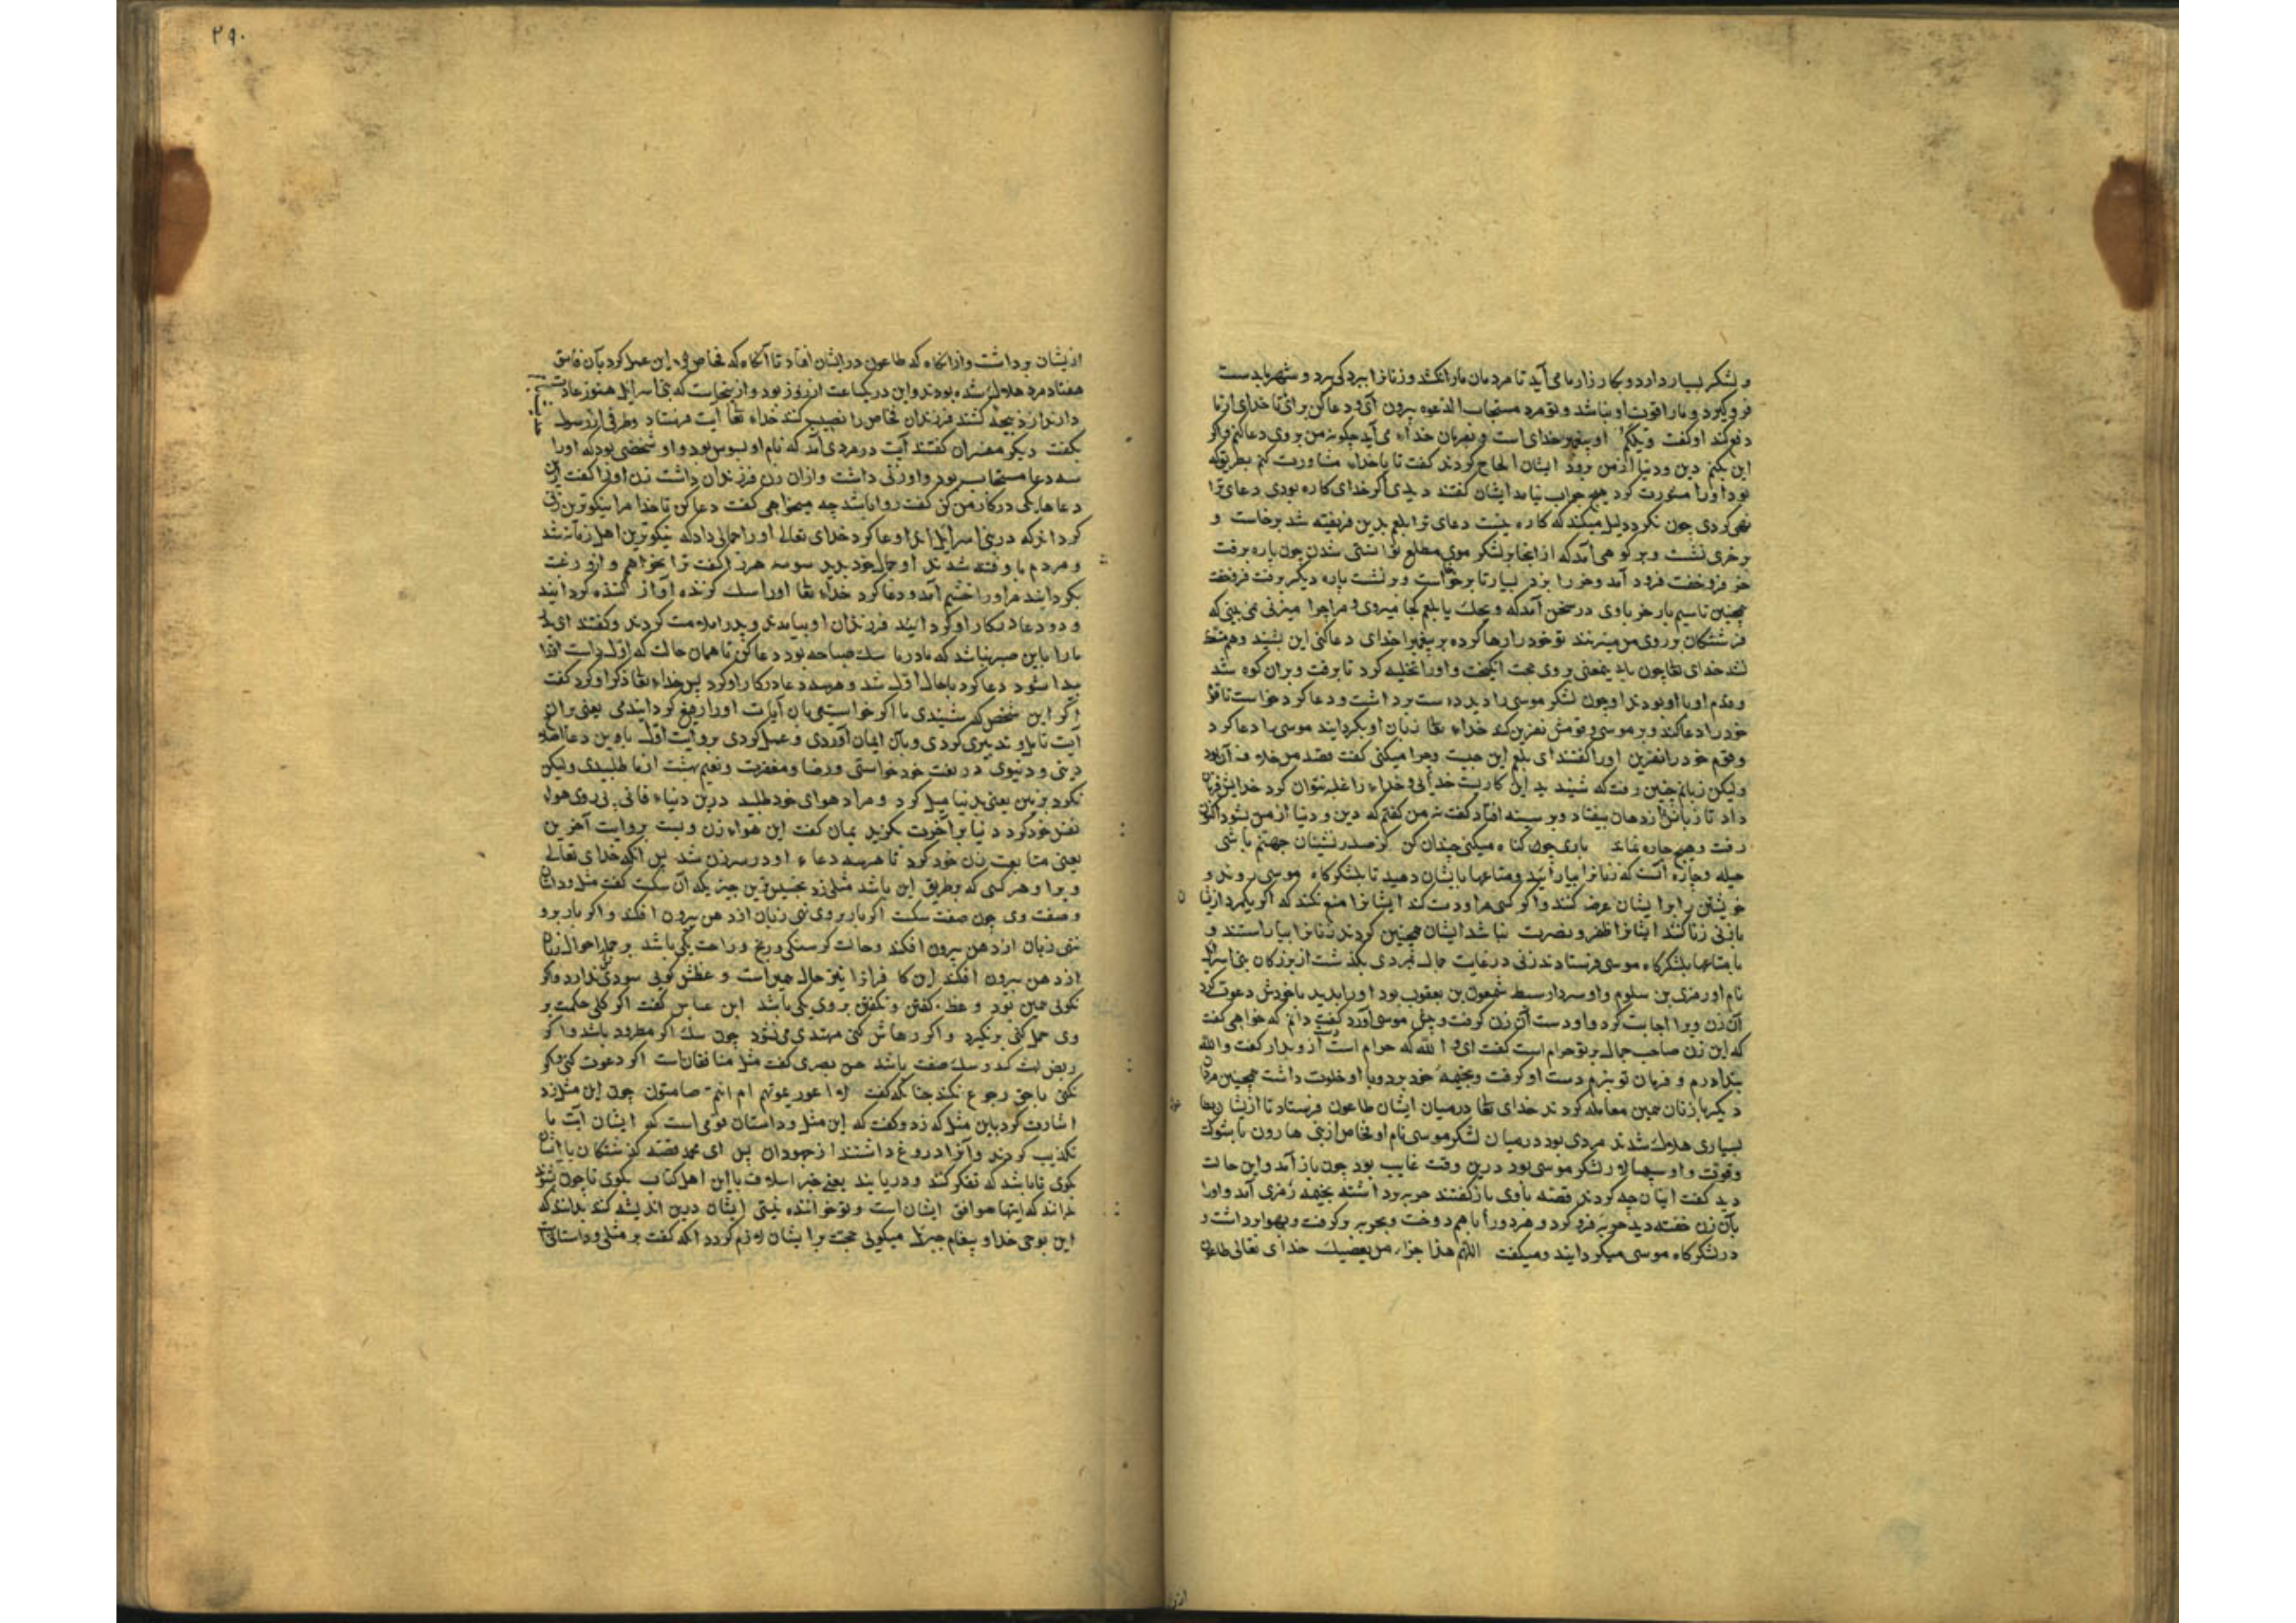 و لشکر بسیار دارد و بکارزار ما می آید تا مردمان ما را بکشد و زنانرا ببردگی برد و شهر ما بدست
فرو گیرد و ما را قوت او نباشد و تو مرد مستجاب الدعوه بیرون آی و دعا کن برای ما تا خدای از ما
دفع کند او گفت ویلکم او پیغمبر خدای است و بفرمان خدای می آید چگونه من بر وی دعا کنم و اگر
این بکنم دین و دنیا از من برود ایشان الحاح کردند گفت تا با خدای مشاورت کنم بطریق که
بود او را مشورت کرد هیچ جواب نیامد ایشان گفتند دیدی اگر خدای کاره بودی دعای ترا
نهی کردی چون نکرد دلیل میکند که کاره نیست دعای ترا بلعم بدین فریفته شد برخاست و
بر خری نشست و بر کوهی آمد که از آنجا بر لشکر موسی مطلع توانستی شدن چون پاره برفت
خر فرو خفت فرود آمد و خر را بزد بسیار تا برخواست و بر نشست پاره دیگر برفت فرو خفت
همچنین تا سیم بار خر با وی در سخن آمد که ویحک یا بلعم کجا میروی و مرا چرا میزنی نمی بینی که
فرشتگان بر روی من میزنند تو خود را رها کرده بر پیغمبر خدای دعا کنی این بشنید و هم
نشد خدای تعالی چون بر وی حجت انگیخت و او را تخلیه کرد تا برفت و بر آن کوه شد
و قوم او با او بودند او چون لشکر موسی را دید دست برداشت و دعا کرد خواست تا قوم
خود را دعا کند و بر موسی و قومش نفرین کند خدای تعالی زبان او بگردانید موسی را دعا کرد
و قوم خود را نفرین او را گفتند ای بلعم این چیست و چرا میکنی گفت قصد من خلاف آن بود
ولیکن زبانم چنین رفت که شنیدید این کاریست خدایی و خدای را غلبه نتوان کرد خدای فرمان
داد تا زبانش از دهان بیفتاد و بر سینه افتاد گفت نه من گفتم که دین و دنیا از من بشود اکنون
رفت و هیچ چاره نماند باری چون گناه میکنی چندان کن کز صدر نشینان جهنم باشی
حیله و چاره آنست که زنانرا بیارائید و متاعها بایشان دهید تا بلشکرگاه موسی روند و
خویشتن را بر ایشان عرض کنند و اگر کسی مراودت کند ایشانرا منع نکنند که اگر یکمرد از ایشان
با زنی زنا کند ایشانرا ظفر و نصرت نباشد ایشان همچنین کردند زنانرا بیاراستند و
با متاعها بلشکرگاه موسی فرستادند زنی در غایت جمال بمردی بگذشت از بزرگان بنی اسرائیل
نام او زمری بن سلوم و او سردار سبط شمعون بن یعقوب بود او را بدید با خودش دعوت کرد
آن زن ویرا اجابت کرد و او دست آن زن گرفت و پیش موسی آورد گفت دانم که خواهی گفت
که این زن صاحب جمال بر تو حرام است گفت ای و الله که حرام است از و بدار گفت والله
بنگذارم و فرمان تو نبرم دست او گرفت و بخیمه خود برد و با او خلوت داشت همچنین مردان
دیگر با زنان همین معامله کردند خدای تعالی درمیان ایشان طاعون فرستاد تا از ایشان
بسیاری هلاک شدند مردی بود درمیان لشکر موسی نام او فنحاص از بنی هارون با شوکت
و قوت و او سپهسالار لشکر موسی بود درین وقت غایب بود چون باز آمد و این حالت
دید گفت ایشان چه کردند قصه با وی بازگفتند حربه برداشته بخیمه زمری آمد و او را
با آن زن خفته دید حربه فرو کرد و هر دو را با هم دوخت و بحربه برگرفت و بهوا برداشت و
در لشکرگاه موسی میگردانید و میگفت اللهم هذا جزاء من یعصیک خدای تعالی طاعون
۲۹۰
ازیشان برداشت و از آنگاه که طاعون در ایشان افتاد تا آنگاه که فنحاص این عمل کرد بآن فاسق
هفتاد مرد هلاک شده بودند و این در یکساعت از روز بود و از اینجاست که بنی اسرائیل هنوز عادت
دارند از ذبیحه کنند فرزندان فنحاص را نصیب کنند خدای تعالی آیت فرستاد
بگفت دیگر مفسران گفتند آیت در مردی آمد که نام او بسوس بود و او شخصی بود که او را
سه دعا مستجاب بود و او زنی داشت و از آن زن فرزندان داشت زن او را گفت ازین
دعاها یکی در کار من کن گفت روا باشد چه میخواهی گفت دعا کن تا خدا مرا نیکوترین زنی
گرداند که در بنی اسرائیل اند او دعا کرد خدای تعالی او را جمالی داد که نیکوترین اهل زمانه شد
و مردم باو فتنه شدند او جمال خود بدید شوهر را گفت ترا نخواهم و ازو رغبت
بگردانید مرد را خشم آمد و دعا کرد خدای تعالی او را سگ گزنده آواز کننده گردانید
و دو دعا در کار او گردانید فرزندان او بیامدند و پدر را ملامت کردند و گفتند ای پدر
ما را باین صبر نباشد که مادر ما سگ صباحه بود دعا کن تا همان حالت که اول داشت او را
پیدا شود دعا کرد با حال اول شد و هر سه دعا در کار او کرد پس خدای تعالی ذکر او کرد گفت
اگر این شخص که شنیدی ما اگر خواستمی بآن آیات او را رفیع گردانیدمی یعنی بر آن
آیت تامل و تدبیری کردی و بآن ایمان آوردی و عمل کردی بروایت اول باین دعا
دینی و دنیوی در بغت خود خواستی و رضا و مغفرت و نعیم بهشت از ما طلبیدی ولیکن
نکرد بزمین یعنی بدنیا میل کرد و مراد هوای خود طلبید درین دنیاء فانی پی روی هواء
نفس خود کرد دنیا بر آخرت بگزید یمان گفت این هواء زن و بست بروایت آخرین
یعنی متابعت زن خود کرد تا هر سه دعاء او در سر زن شد پس آنکه خدای تعالی
ویرا و هر کسی که بطریق این باشد مثلی زد بخسیس ترین چیزیکه آن سگست گفت مثل و داستان
و صفت وی چون صفت سگست اگر بار بر وی نهی زبان از دهن بیرون افکند و اگر بار برو
ننهی زبان از دهن بیرون افکند و حالت گرسنگی و رنج و راحت یکی باشد بر همه احوال زبان
از دهن بیرون افکند این کافرانرا نیز حال همین است و عظش گویی سودی ندارد و اگر
نگوئی همین بود و عظ گفتن و نگفتن بر وی یکی باشد ابن عباس گفت اگر کلی حکمت بر
وی حمل کنی برنگیرد و اگر رهاش کنی مهتدی می نشود چون سگ اگر مطرود باشد و اگر
ربض بست که در سگ صفت باشد حسن بصری گفت مثل منافقان است اگر دعوت کنی و اگر
نکنی با حق رجوع نکند چنانکه گفت ادعوتموهم ام انتم صامتون چون این مثل زد
اشارت کرد باین مثل که زد و گفت که این مثل و داستان قومی است که ایشان آیت ما
تکذیب کردند و آنرا دروغ داشتند از جهودان پس ای محمد قصه گذشتگان با ایشان
گوی تا باشد که تفکر کنند و دریابند یعنی خبر اسلاف با این اهل کتاب بگوی تا چون بشنوند
بدانند که اینها موافق ایشان است و تو خواننده نیستی ایشان درین اندیشه کنند بدانند که
این بوحی خدا و پیغام جبرئیل میگوئی حجت بر ایشان لازم گردد آنکه گفت بد مثلی و داستانی